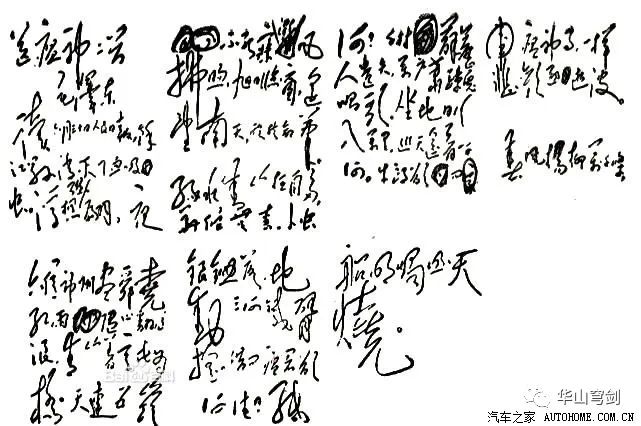 送瘟神二首
毛泽东
读六月三十日人民日报,余
江县消灭了血吸
虫,浮想联翩,夜
不能寐,微风
拂煦,旭日临窗,遥
望南天,欣然命笔。
绿水青山枉自多,
华佗无奈小虫
何!千村薜苈
人遗矢,万户萧疏
鬼唱歌。坐地日行
八万里,巡天遥看一千
河。牛郎欲问
瘟神事,一样
悲欢逐逝波。
春风杨柳万千条
六亿神州尽舜尧
红雨随心翻作
浪,青山着意化为
桥 天连五岭
银锄落,地
动三河铁臂
摇。借问瘟君欲
何往?纸
船明烛照天
烧。
Baidu百科
华山穹剑
汽车之家 AUTOHOME.COM.CN